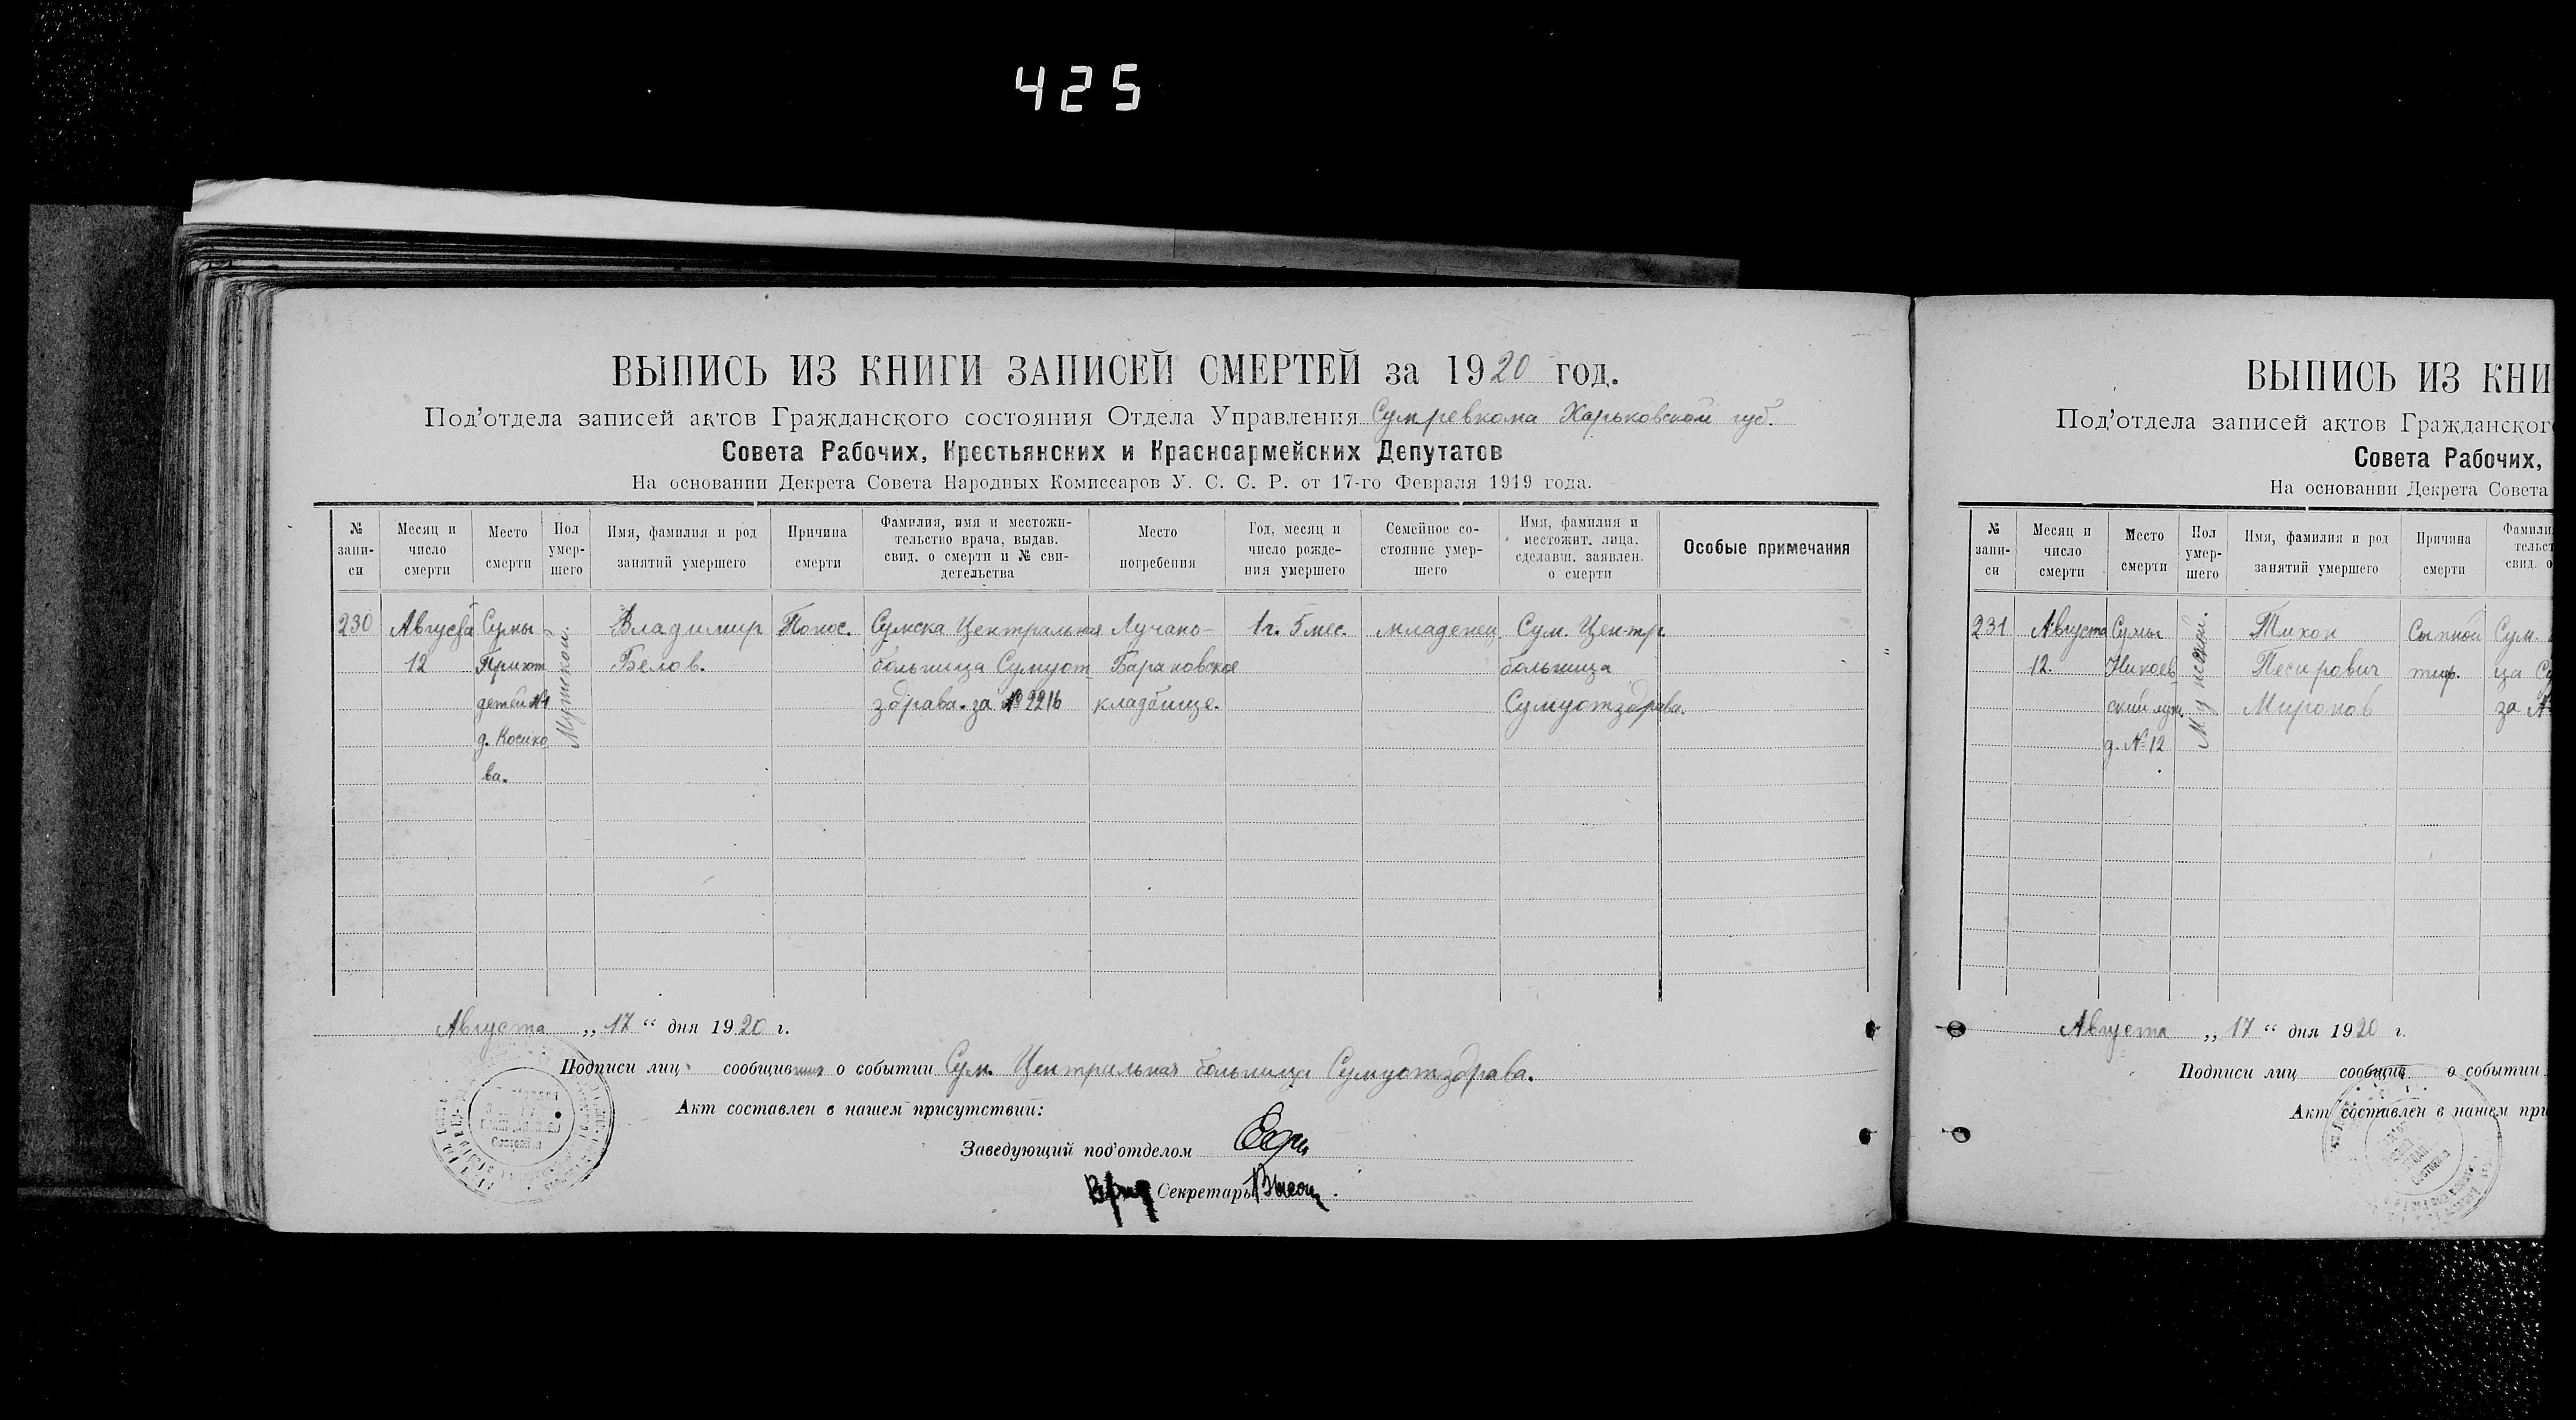 425
ВЫПИСЬ ИЗ КНИГИ ЗАПИСЕЙ СМЕРТЕЙ за 1920 год.
Под'отдела записей актов Гражданского состояния Отдела Управления Сумревкома Харьковской губ.
Совета Рабочих, Крестьянских и Красноармейских Депутатов
На основании Декрета Совета Народных Комиссаров У. С. С. Р. от 17-го Февраля 1919 года.
№ запи-
си
Месяц и
число
смерти
Место
смерти
Пол
умер-
шего
Имя, фамилия и род
занятий умершего
Причина
смерти
Фамилия, имя и местожи-
тельство врача, выдав.
свид. о смерти и № сви-
детельства
Место
погребения
Год, месяц и
число рожде-
ния умершего
Семейное со-
стояние умер-
шего
Имя, фамилия и
местожит. лица,
сделавш. заявлен.
о смерти
Особые примечания
230
Августа
12
Сумы
Приют
детей №1
д. Косико
ва.
Мужской.
Владимир
Белов.
Понос.
Сумска Центральная
больница Сумуот
здрава. за №2216
Лучано-
Барановское
кладбище.
1г. 5 мес.
младенец
Сум. Центр.
больница
Сумуотздрава.
Августа „17“ дня 1920 г.
Подписи лиц сообщивших о событии Сум. Центральная больница Сумуотздрава.
Акт составлен в нашем присутствии:
Заведующий под'отделом
Секретарь
ВЫПИСЬ ИЗ КНИ
Под'отдела записей актов Гражданского
Совета Рабочих,
На основании Декрета Совета
№
запи-
си
Месяц и
число
смерти
Место
смерти
Пол
умер-
шего
Имя, фамилия и род
занятий умершего
Причина
смерти
Фамили
тельст
свид. о
231
Августа
12.
Сумы
д. №12
Тихон
Миронов
Сыпной
тиф.
Сум.
за
Августа „17“ дня 1920 г.
Подписи лиц сообщив о событии
Акт составлен в нашем при